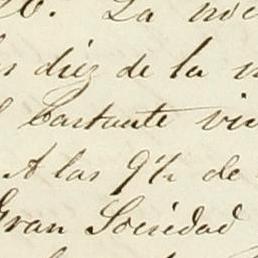 La noc
diez de la n
bastante vi
A las 9½ de
Gran Sociedad